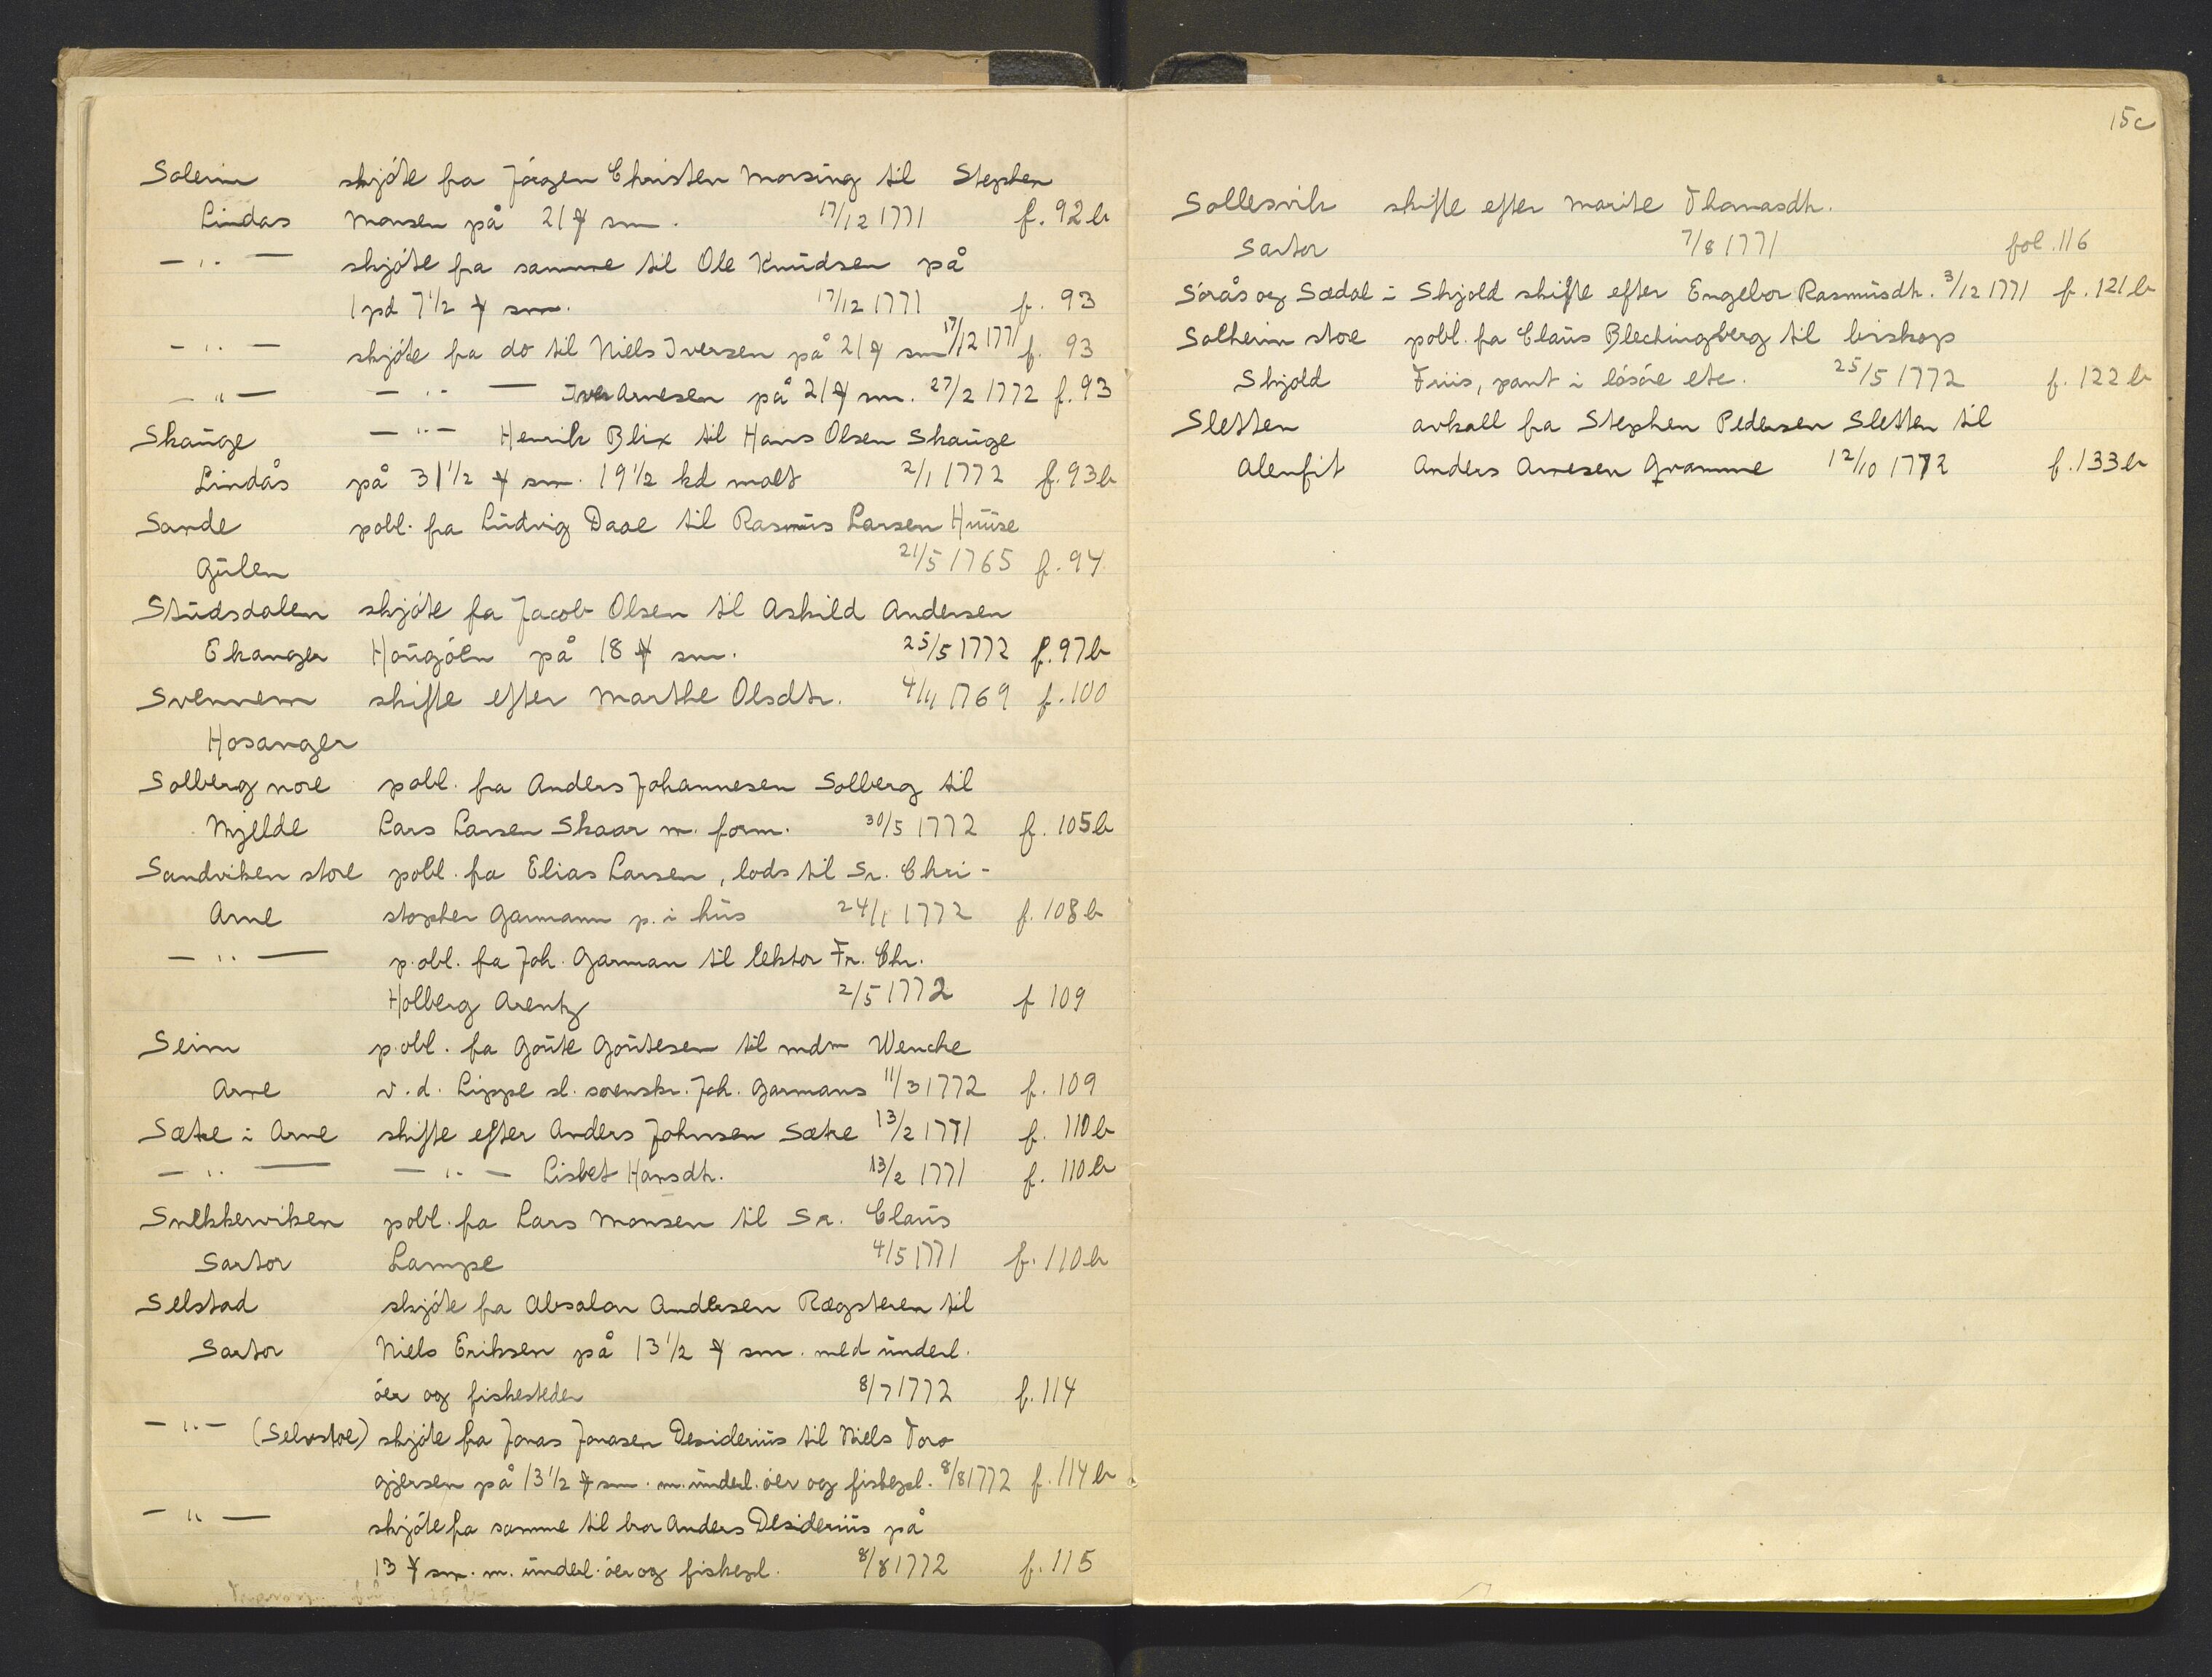 Soleim skjöte fra Jörgen Christen Morsing til Stephen
Lindas Monsen på 21 ℔ sm. 17/12 1771 f. 92b
— " — skjöte fra samme til Ole Knudsen på
1 pd 7 1/2 ℔ sm. 17/12 1771 f. 93
— " — skjöte fra do til Niels Iversen på 21 ℔ sm 17/12 1771 f. 93
— " — — " — Iver Arnesen på 21 ℔ sm. 27/2 1772 f. 93
Skauge — " — Henrik Blix til Hans Olsen Skauge
Lindås på 31 1/2 ℔ sm. 19 1/2 kd malt 2/1 1772 f. 93b
Sande pobl. fra Ludvig Daae til Rasmus Larsen Huuse
Gulen 21/5 1765 f. 94
Studsdalen skjöte fra Jacob Olsen til Askild Andersen
Ekanger Hougöen på 18 ℔ sm. 25/5 1772 f. 97b
Svennem skifte efter Marthe Olsdtr. 4/11 1769 f. 100
Hosanger
Solberg nore pobl. fra Anders Johannesen Solberg til
Mjelde Lars Larsen Skaar m. form. 30/5 1772 f. 105b
Sandviken store pobl. fra Elias Larsen, lods til Sr. Chri-
Arne stopher Garmann p. i hus 24/1 1772 f. 108b
— " — p.obl. fra Joh. Garman til lektor Fr. Chr.
Holberg Arentz 2/5 1772 f 109
Seim p.obl. fra Goute Goutesen til mdm Wencke
Arne v. d. Lippe sl. sorenskr. Joh. Garmans 11/3 1772 f. 109
Sætre i Arne skifte efter Anders Johnsen Sætre 13/2 1771 f. 110b
— " — — " — Lisbet Hansdtr. 13/2 1771 f. 110b
Snekkerviken pobl. fra Lars Monsen til Sr. Claus
Sartor Lampe 4/5 1771 f. 110b
Selstad skjöte fra Absalon Andersen Rægsteren til
Sartor Niels Eriksen på 13 1/2 ℔ sm. med underl.
öer og fiskesteder 8/7 1772 f. 114
— " — (Selvstoe) skjöte fra Jonas Jonasen Desiderius til Niels Tor-
gjersen på 13 1/2 ℔ sm. m. underl. öer og fiskepl. 8/8 1772 f. 114b
— " — skjöte fra samme til bror Anders Desiderius på
13 ℔ sm. m. underl. öer og fiskepl. 8/8 1772 f. 115
15c
Sollesvik skifte efter Marite Thomasdtr.
Sartor 7/8 1771 fol. 116
Sörås og Sædal i Skjold skifte efter Engebor Rasmusdtr. 3/12 1771 f. 121b
Solheim store pobl. fra Claus Blechingberg til biskop
Skjold Friis, pant i lösöre etc. 25/5 1772 f. 122b
Sletten avkall fra Stephen Pedersen Sletten til
Alenfit Anders Arnesen Qvamme 12/10 1772 f. 133b